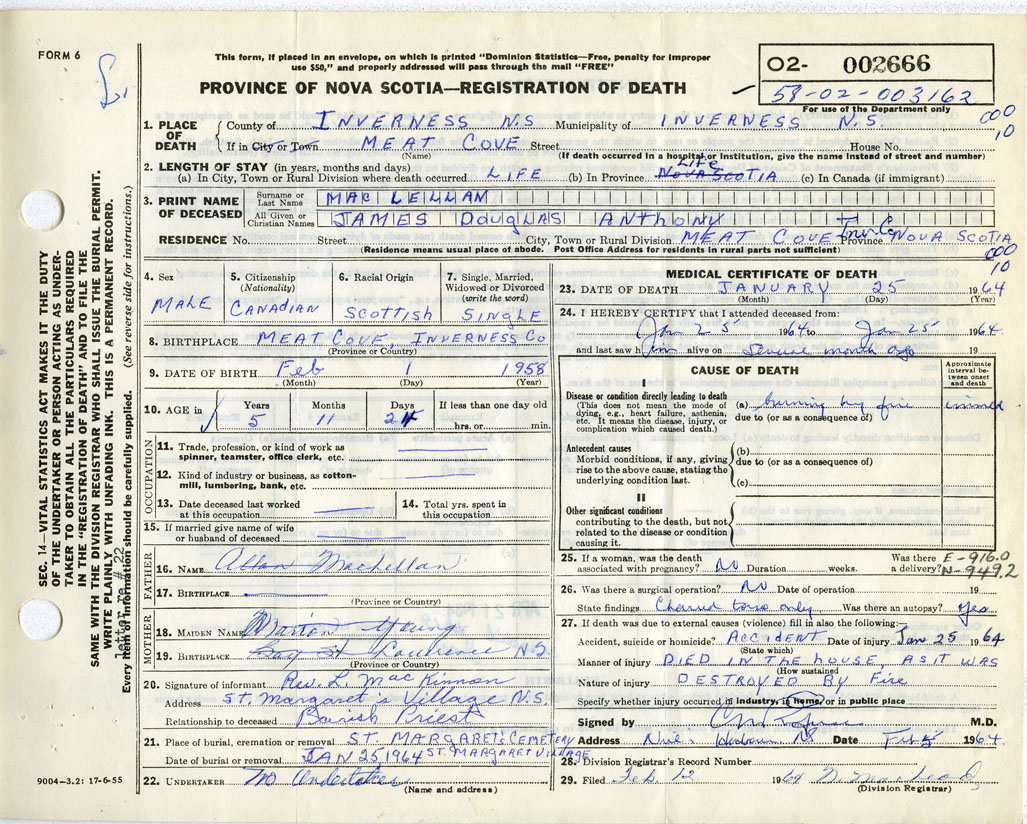 FORM 6
This form, if placed in an envelope, on which is printed "Dominion Statistics—Free, penalty for improper
use $50," and properly addressed will pass through the mail "FREE"
PROVINCE OF NOVA SCOTIA—REGISTRATION OF DEATH
O2- 002666
58-02-003162
For use of the Department only
000
10
SEC. 14—VITAL STATISTICS ACT MAKES IT THE DUTY
OF THE UNDERTAKER OR PERSON ACTING AS UNDER-
TAKER TO OBTAIN ALL THE PARTICULARS REQUIRED
IN THE "REGISTRATION OF DEATH" AND TO FILE THE
SAME WITH THE DIVISION REGISTRAR WHO SHALL ISSUE THE BURIAL PERMIT.
WRITE PLAINLY WITH UNFADING INK. THIS IS A PERMANENT RECORD.
Every item of information should be carefully supplied. (See reverse side for instructions.)
letter re # 22
1. PLACE OF DEATH County of INVERNESS N.S. Municipality of INVERNESS N.S.
If in City or Town MEAT COVE Street House No.
(Name) (If death occurred in a hospital or institution, give the name instead of street and number)
2. LENGTH OF STAY (in years, months and days)
(a) In City, Town or Rural Division where death occurred LIFE (b) In Province NOVA SCOTIA LIFE (c) In Canada (if immigrant)
3. PRINT NAME OF DECEASED
Surname or Last Name MAC LELLAN
All Given or Christian Names JAMES DOUGLAS ANTHONY
RESIDENCE No. Street City, Town or Rural Division MEAT COVE Province NOVA SCOTIA
(Residence means usual place of abode. Post Office Address for residents in rural parts not sufficient)
000
10
4. Sex MALE
5. Citizenship (Nationality) CANADIAN
6. Racial Origin SCOTTISH
7. Single, Married, Widowed or Divorced (write the word) SINGLE
8. BIRTHPLACE MEAT COVE, INVERNESS Co
(Province or Country)
9. DATE OF BIRTH Feb 1 1958
(Month) (Day) (Year)
10. AGE in Years 5 Months 11 Days 24 If less than one day old hrs. or min.
OCCUPATION
11. Trade, profession, or kind of work as spinner, teamster, office clerk, etc.
12. Kind of industry or business, as cotton-mill, lumbering, bank, etc.
13. Date deceased last worked at this occupation
14. Total yrs. spent in this occupation
15. If married give name of wife or husband of deceased
FATHER
16. NAME Allan MacLellan
17. BIRTHPLACE
(Province or Country)
MOTHER
18. MAIDEN NAME Marion Young
19. BIRTHPLACE Bay St Lawrence N.S.
(Province or Country)
20. Signature of informant Rev. L. MacKinnon
Address ST. Margaret's Village N.S.
Relationship to deceased Parish Priest
21. Place of burial, cremation or removal ST. MARGARET'S CEMETERY
Date of burial or removal JAN 25, 1964 ST. MARGARET VILLAGE
22. UNDERTAKER No Undertaker
(Name and address)
9004-3.2: 17-6-55
MEDICAL CERTIFICATE OF DEATH
23. DATE OF DEATH JANUARY 25 1964
(Month) (Day) (Year)
24. I HEREBY CERTIFY that I attended deceased from:
Jan 25 1964 to Jan 25 1964
and last saw him alive on several month ago 19
CAUSE OF DEATH
Approximate interval between onset and death
I
Disease or condition directly leading to death
(This does not mean the mode of dying, e.g., heart failure, asthenia, etc. It means the disease, injury, or complication which caused death.)
(a) burning by fire immed.
due to (or as a consequence of)
Antecedent causes
Morbid conditions, if any, giving rise to the above cause, stating the underlying condition last.
(b)
due to (or as a consequence of)
(c)
II
Other significant conditions
contributing to the death, but not related to the disease or condition causing it.
25. If a woman, was the death associated with pregnancy? No Duration weeks. Was there a delivery?
E-916.0
N-949.2
26. Was there a surgical operation? No Date of operation 19
State findings Charred torso only. Was there an autopsy? Yes
27. If death was due to external causes (violence) fill in also the following:
Accident, suicide or homicide? ACCIDENT Date of injury Jan 25 1964
(State which)
Manner of injury DIED IN THE HOUSE, AS IT WAS
(How sustained)
Nature of injury DESTROYED BY FIRE
Specify whether injury occurred in industry, in home, or in public place
Signed by M.D.
Address Date Feb 5 1964
28. Division Registrar's Record Number
29. Filed Feb. 12 1964 N. MacLeod
(Division Registrar)